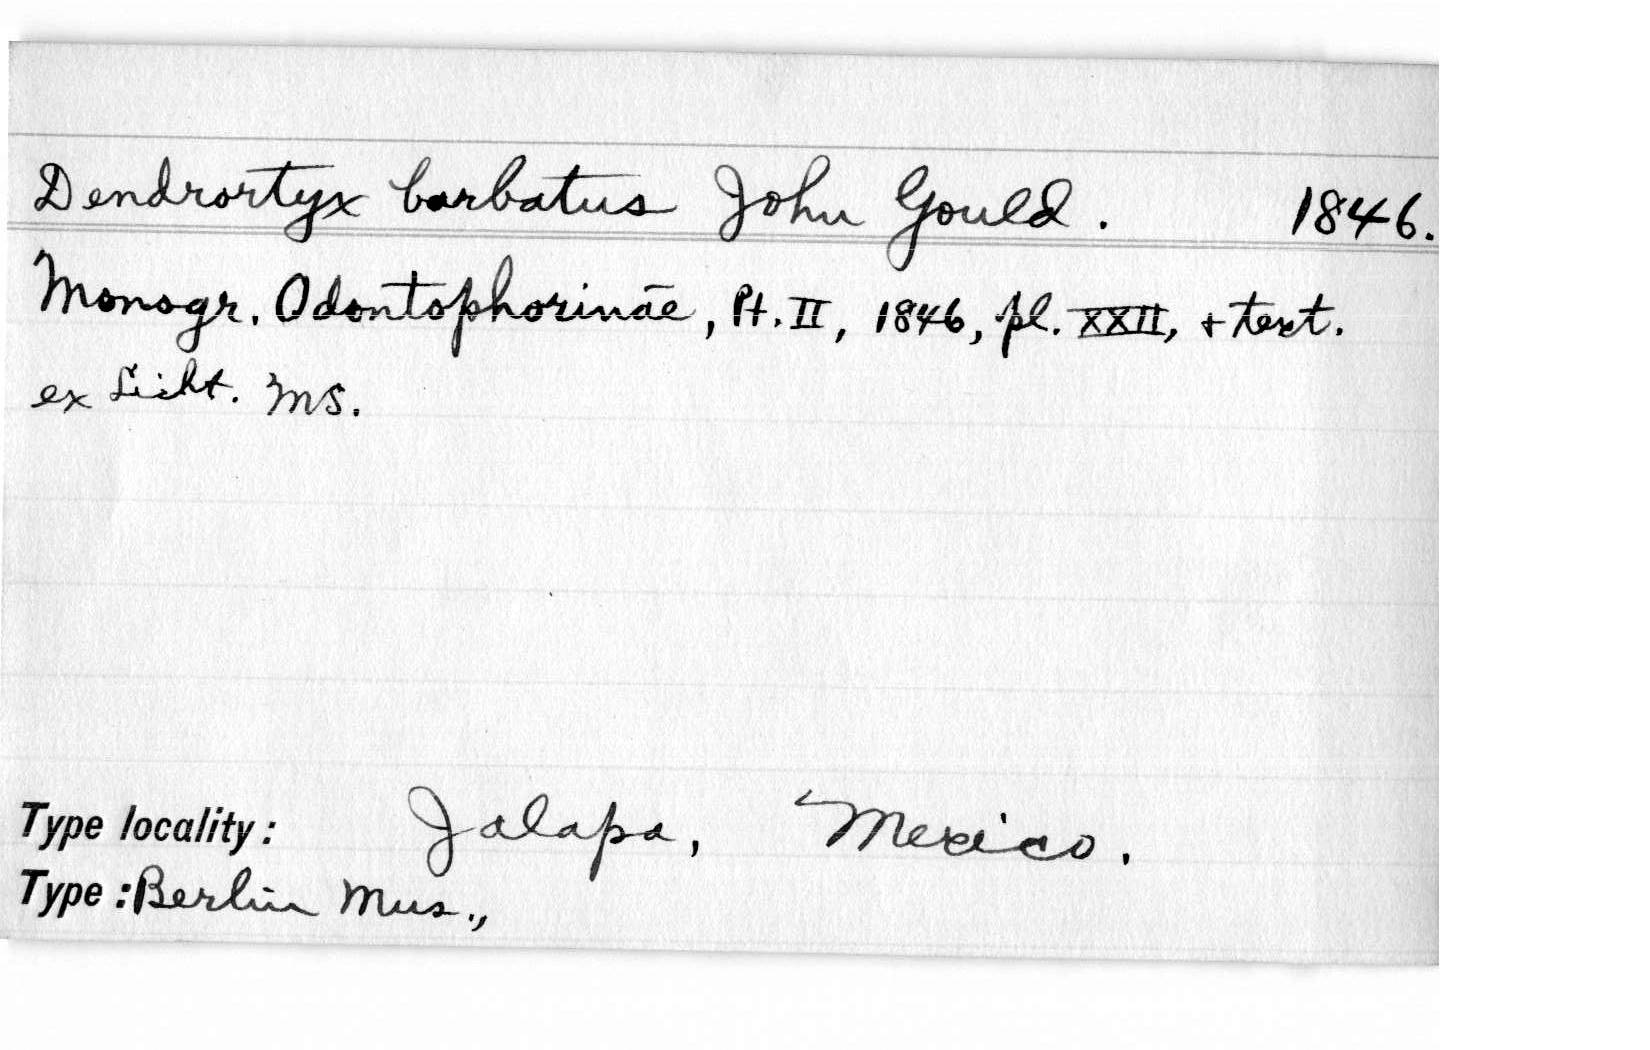 Dendrortyx barbatus John Gould. 1846.
Monogr. Odontophorinae, Pt. II, 1846, pl. XXII, + text.
ex Licht. MS.
Type locality: Jalapa, Mexico.
Type: Berlin Mus.,